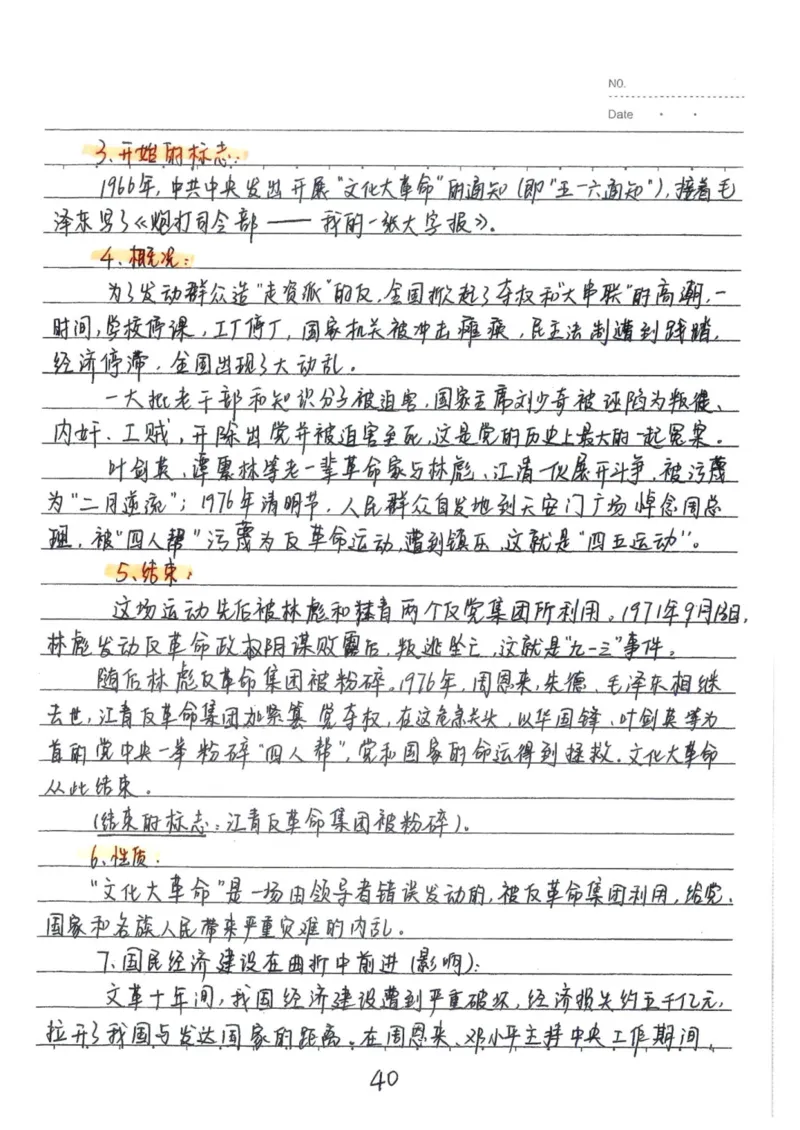 NO.
Date
3、开始的标志：
1966年，中共中央发出开展"文化大革命"的通知（即"五一六通知"），接着毛
泽东写了《炮打司令部——我的一张大字报》。
4、概况：
为了发动群众造"走资派"的反，全国掀起了夺权和"大串联"的高潮，一
时间，学校停课，工厂停工，国家机关被冲击瘫痪，民主法制遭到践踏，
经济停滞，全国出现了大动乱。
一大批老干部和知识分子被迫害，国家主席刘少奇被诬陷为叛徒、
内奸、工贼，开除出党并被迫害至死，这是党的历史上最大的一起冤案。
叶剑英、谭震林等老一辈革命家与林彪、江清一伙展开斗争，被污蔑
为"二月逆流"；1976年清明节，人民群众自发地到天安门广场悼念周总
理，被"四人帮"污蔑为反革命运动，遭到镇压，这就是"四五运动"。
5、结束：
这场运动先后被林彪和江青两个反党集团所利用。1971年9月13日，
林彪发动反革命政权阴谋败露后，叛逃坠亡，这就是"九一三"事件。
随后林彪反革命集团被粉碎。1976年，周恩来、朱德、毛泽东相继
去世，江青反革命集团加紧篡党夺权，在这危急关头，以华国锋、叶剑英等为
首的党中央一举粉碎"四人帮"，党和国家的命运得到拯救。文化大革命
从此结束。
（结束的标志：江青反革命集团被粉碎）。
6、性质．
"文化大革命"是一场由领导者错误发动的，被反革命集团利用，给党、
国家和各族人民带来严重灾难的内乱。
7、国民经济建设在曲折中前进（影响）：
文革十年间，我国经济建设遭到严重破坏，经济损失约五千亿元，
拉开了我国与发达国家的距离。在周恩来、邓小平主持中央工作期间，
40